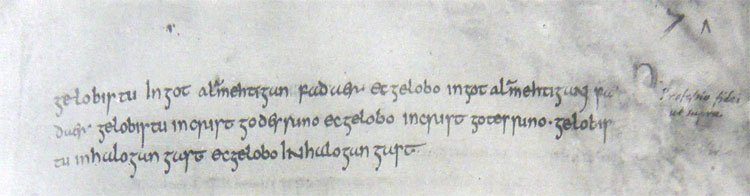 gelobistu in got alamehtigan fadaer ec gelobo in got alamehtigan fa
daer gelobistu in crist godes suno ec gelobo in crist gotes suno. gelobis
tu in halogan gast ec gelobo in halogan gast.
Professio fidei
ut supra